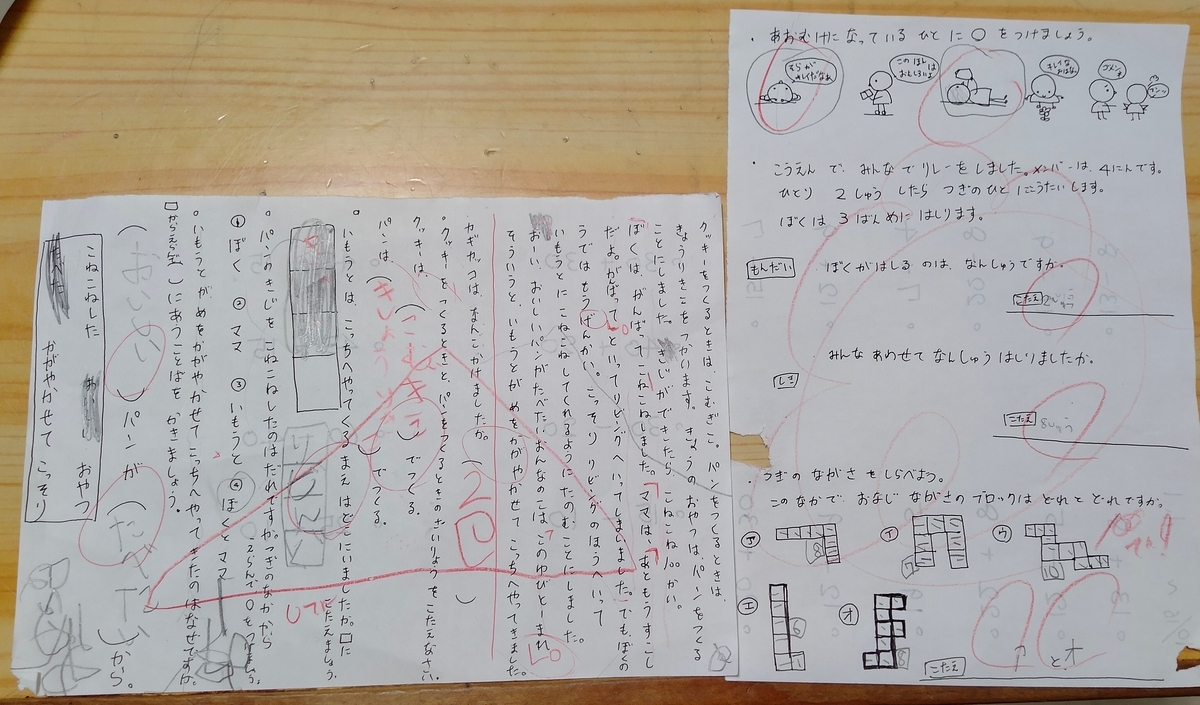 ・あおむけに なっている ひと に ○ をつけましょう。
そらが キレイだなぁ
このほんは おもしろいよ
キレイな おはな
ゴメンネ
フンッ
・こうえん で、みんな で リレーを しました。メンバーは、4にんです。
ひとり 2しゅう したら つぎのひと に こうたいします。
ぼくは 3ばんめに はします。
もんだい ぼくがはしるのは、なんしゅうですか。
こたえ 2しゅう
みんな あわせて なんしゅう はしりましたか。
しき
こたえ 8しゅう
・つぎの ながさ を しらべよう。
このなかで おなじ ながさの ブロックは どれと どれですか。
ア 8
イ
ウ 10
エ
オ 8
こたえ と、オ
クッキーをつくるときは、こむぎこ。パンをつくるときは、
きょうりきこを つかいます。きょうの おやつは、パンを つくる
ことにしました。きじができたら、こねこね100かい。
ぼくは、がんばってこねこねしました。「ママは、「あともうすこし
だよ。がんばって」といって リビングへ いって しまいました。でも、ぼくの
うではもうげんかい。こっそり リビングのほうへいって
いもうとに こねこねしてくれるように たのむ ことにしました。
「おーい、おいしいパンがたべたいおんなのこは、このゆびとーまれ
そういうと、いもうとが めを かがやかせて こっちへやってきました。
カギカッコは、なんこかけましたか。(2)
・クッキーをつくるときと、パンをつくるときのざいりょうを こたえなさい。
クッキーは、(こむぎこ) でつくる。
パンは、(きょうりきこ) でつくる。
・いもうとは、こっちへやってくるまえは どこにいましたか。□に こたえましょう。
リビング
・パンのきじを こねこねしたのはだれですか。つぎのなかから えらんで ○をつけましょう。
① ぼく ② ママ ③ いもうと ④ ぼくとママ
・いもうとが めをかがやかせて こっちへやってきたのは なぜですか。
□からえらび( )にあうことばを かきましょう。
(おいしい) パンが (たべたい) から。
こねこねした おやつ
かがやかせて こっそり